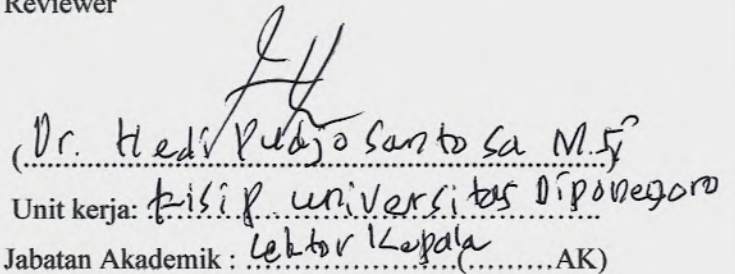 Reviewer
(Dr. Hedi Pudjo Santosa M.Si)
Unit kerja: Fisip universitas Diponegoro
Jabatan Akademik : Lektor Kepala (.........AK)